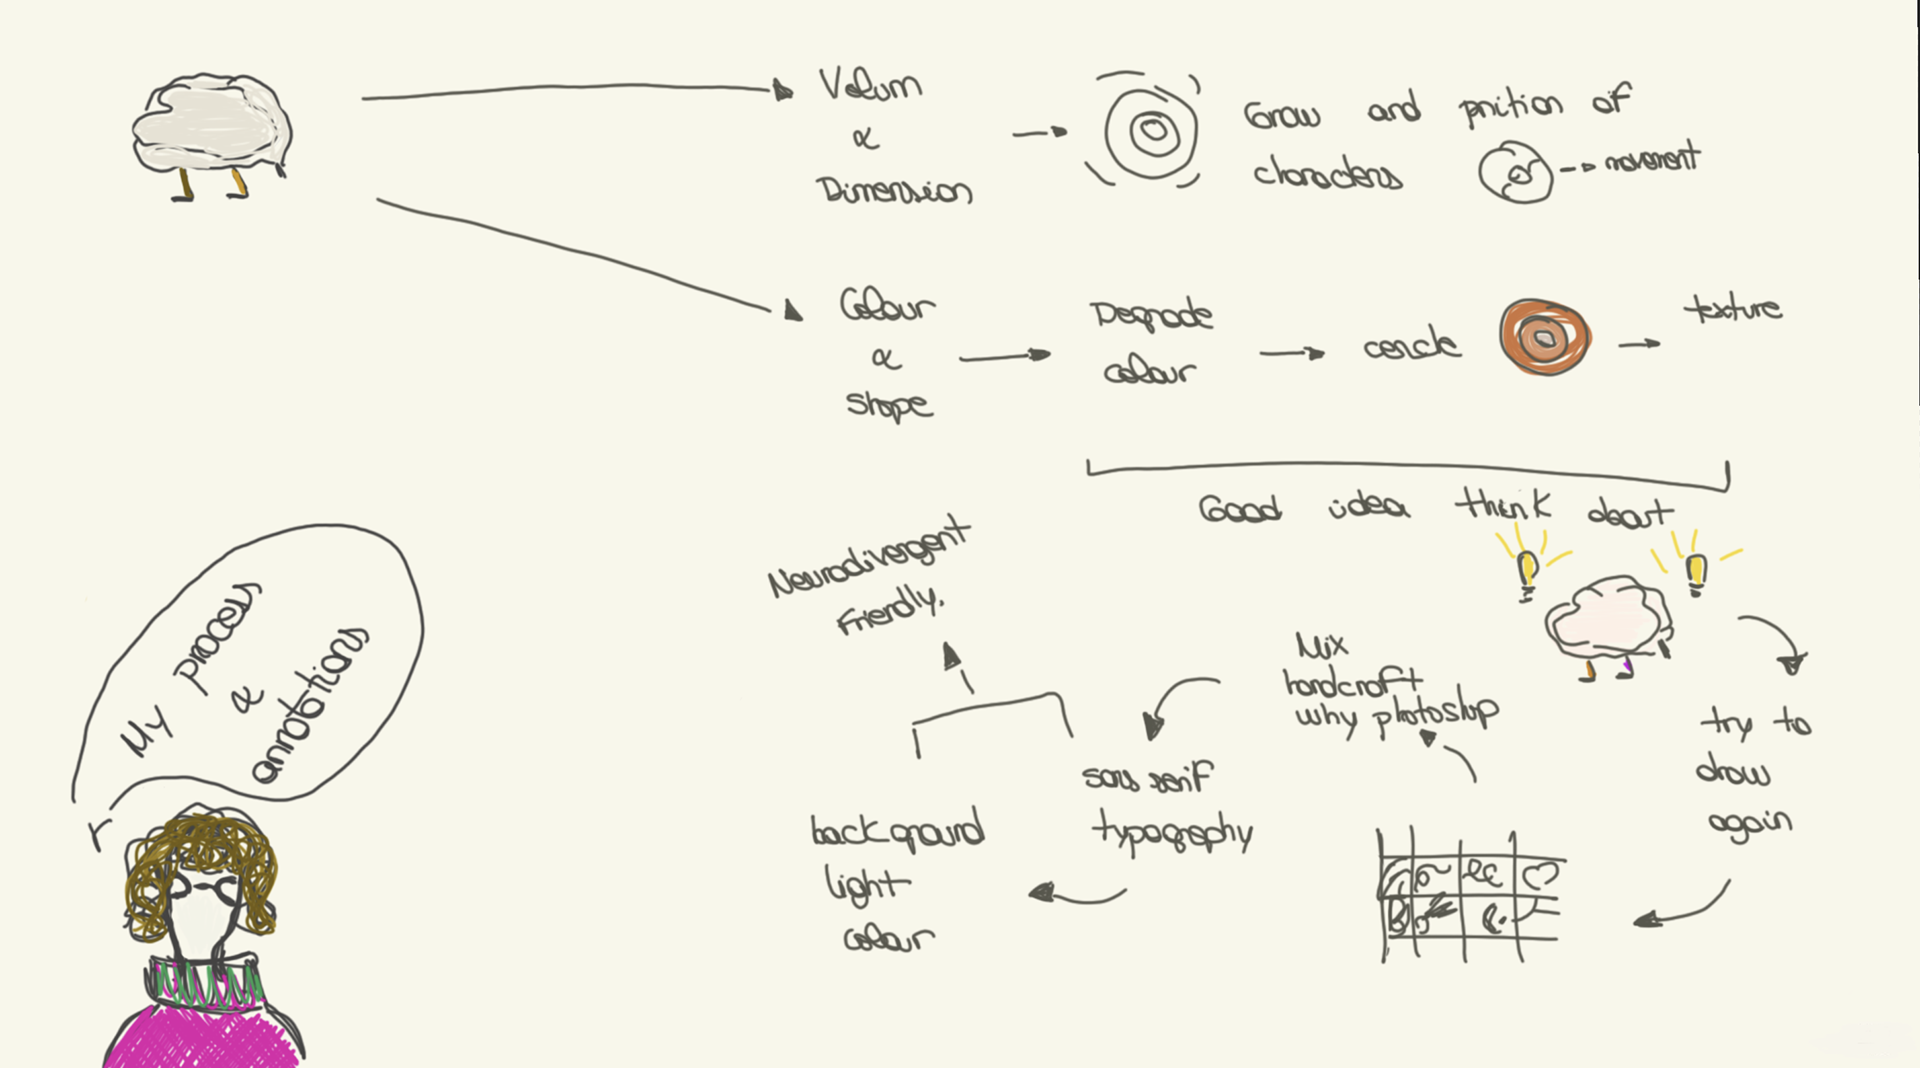 Volum
&
Dimension
Grow and prition of
characters
movement
Colour
&
shape
Degrade
colour
cercle
texture
Good idea think about
try to
draw
again
Mix
handcraft
why photoshop
sans serif
typography
background
light
colour
Neurodivergent
Friendly.
My process
&
annotations